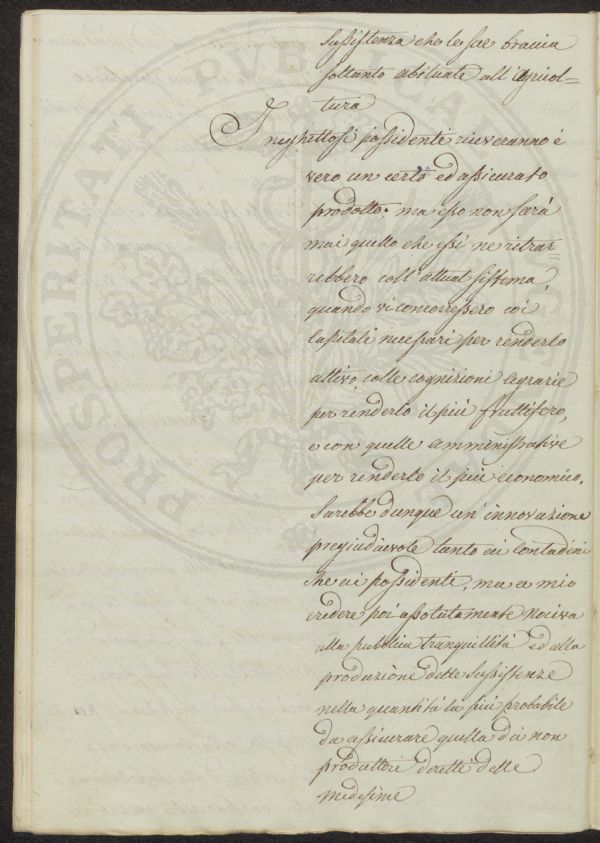 sussistenza che le sue braccia
soltanto abituate all'agricol=
tura
I neghittosi possidenti riceveranno è
vero un certo ed assicurato
prodotto; ma esso non sarà
mai quello che essi ne ritrar=
rebbero coll'attual sistema,
quando vi concorressero coi
Capitali necessari per renderlo
attivo, colle cognizioni Agrarie
per renderlo il più fruttifero,
e con quelle amministrative
per renderlo il più economico.
Sarebbe dunque un'innovazione
pregiudicevole tanto ai Contadini
che ai possidenti, ma a mio
credere poi assolutamente nociva
alla pubblica tranquillità ed alla
produzione delle sussistenze
nella quantità la più probabile
da assicurare quella dei non
produttori diretti delle
medesime
PROSPERITATI PUBLICAE